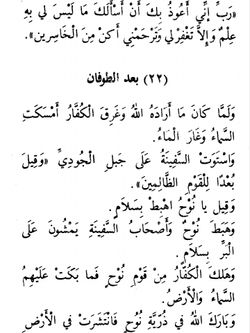 «رَبِّ إِنِّي أَعُوذُ بِكَ أَنْ أَسْأَلَكَ مَا لَيْسَ لِي بِهِ
عِلْمٌ وَإِلَّا تَغْفِرْ لِي وَتَرْحَمْنِي أَكُنْ مِنَ الْخَاسِرِينَ».
(٢٢) بعد الطوفان
وَلَمَّا كَانَ مَا أَرَادَهُ اللهُ وَغَرِقَ الْكُفَّارُ أَمْسَكَتِ
السَّمَاءُ وَغَارَ الْمَاءُ.
وَاسْتَوَتْ السَّفِينَةُ عَلَى جَبَلِ الْجُودِيِّ «وَقِيلَ
بُعْدًا لِلْقَوْمِ الظَّالِمِينَ».
وَقِيلَ يَا نُوْحُ اهْبِطْ بِسَلَامٍ.
وَهَبَطَ نُوْحٌ وَأَصْحَابُ السَّفِينَةِ يَمْشُونَ عَلَى
الْبَرِّ بِسَلَامٍ.
وَهَلَكَ الْكُفَّارُ مِنْ قَوْمِ نُوْحٍ فَمَا بَكَتْ عَلَيْهِمُ
السَّمَاءُ وَالْأَرْضُ.
وَبَارَكَ اللهُ فِي ذُرِّيَّةِ نُوْحٍ فَانْتَشَرَتْ فِي الْأَرْضِ